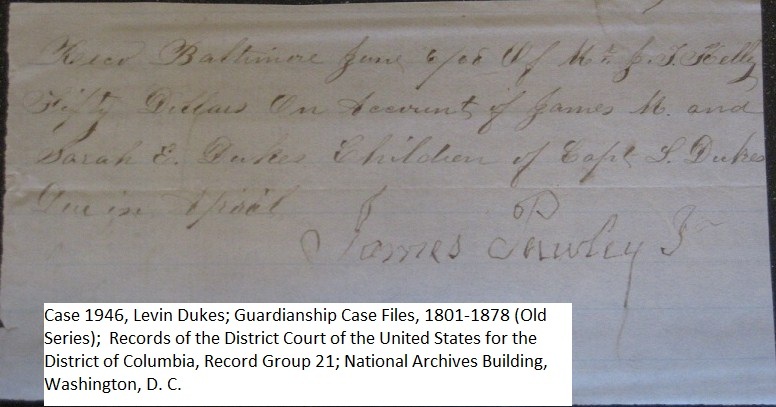 Recd Baltimore June Of Mr. J. T. Kelly
Fifty Dollars On Account of James M. and
Sarah E. Dukes Children of Capt L. Dukes
Due in Apral
James Pawley Jr
Case 1946, Levin Dukes; Guardianship Case Files, 1801-1878 (Old
Series);  Records of the District Court of the United States for the
District of Columbia, Record Group 21; National Archives Building,
Washington, D. C.